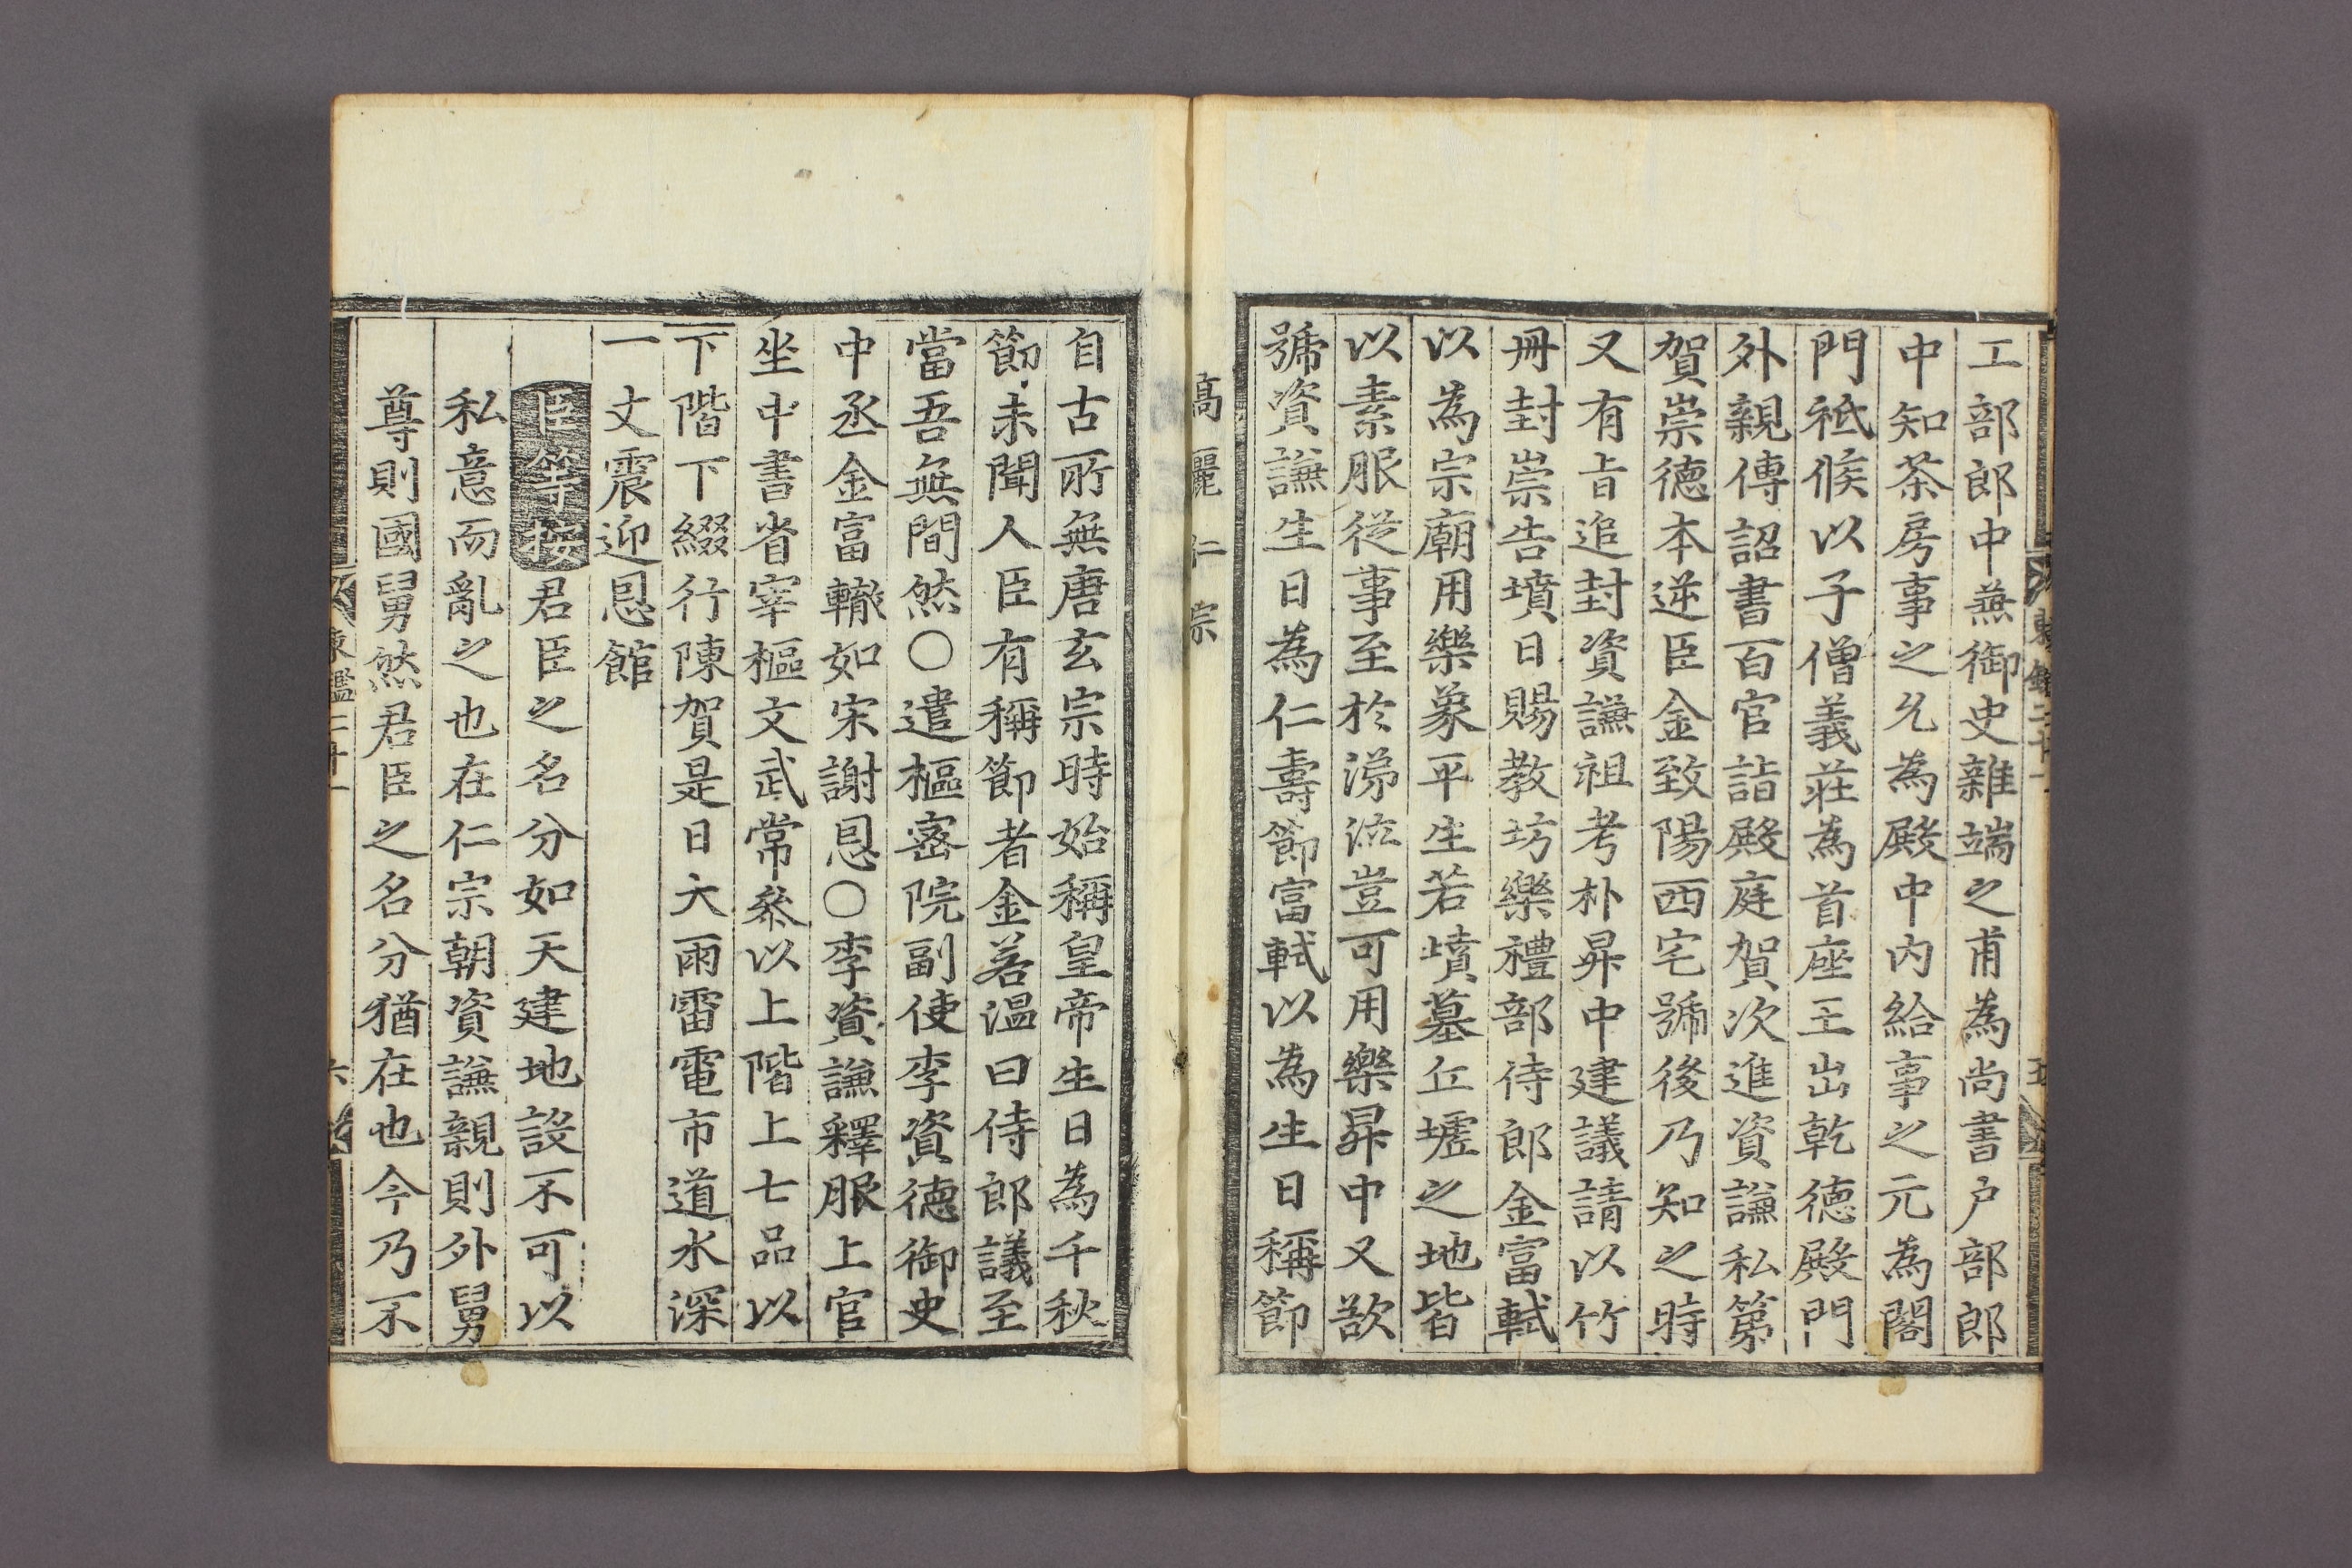 工部郎中蕪御史雜端之甫為尚書户部郎
中知茶房事之允為殿中内給事之元為閤
門祗候以子僧義莊為首座王出乾德殿門
外親傳詔書百官詣殿庭賀次進資謙私第
賀崇德本逆臣金致陽西宅號後乃知之時
又有旨追封資謙祖考朴昇中建議請以竹
冊封崇告墳日賜教坊樂禮部侍郎金富軾
以為宗廟用樂象平生若墳墓丘墟之地皆
以素服從事至於涕泣豈可用樂昇中又欲
號資謙生日為仁壽節富軾以為生日稱節
高麗仁宗
自古所無唐玄宗時始稱皇帝生日為千秋
節未聞人臣有稱節者金若温曰侍郎議至
當吾無間然○遣樞密院副使李資德御史
中丞金富轍如宋謝恩○李資謙釋服上官
坐中書省宰樞文武常叅以上階上七品以
下階下綴行陳賀是日大雨雷電市道水深
一丈震迎恩館
臣等按君臣之名分如天建地設不可以
私意而亂之也在仁宗朝資謙親則外舅
尊則國舅然君臣之名分猶在也今乃不